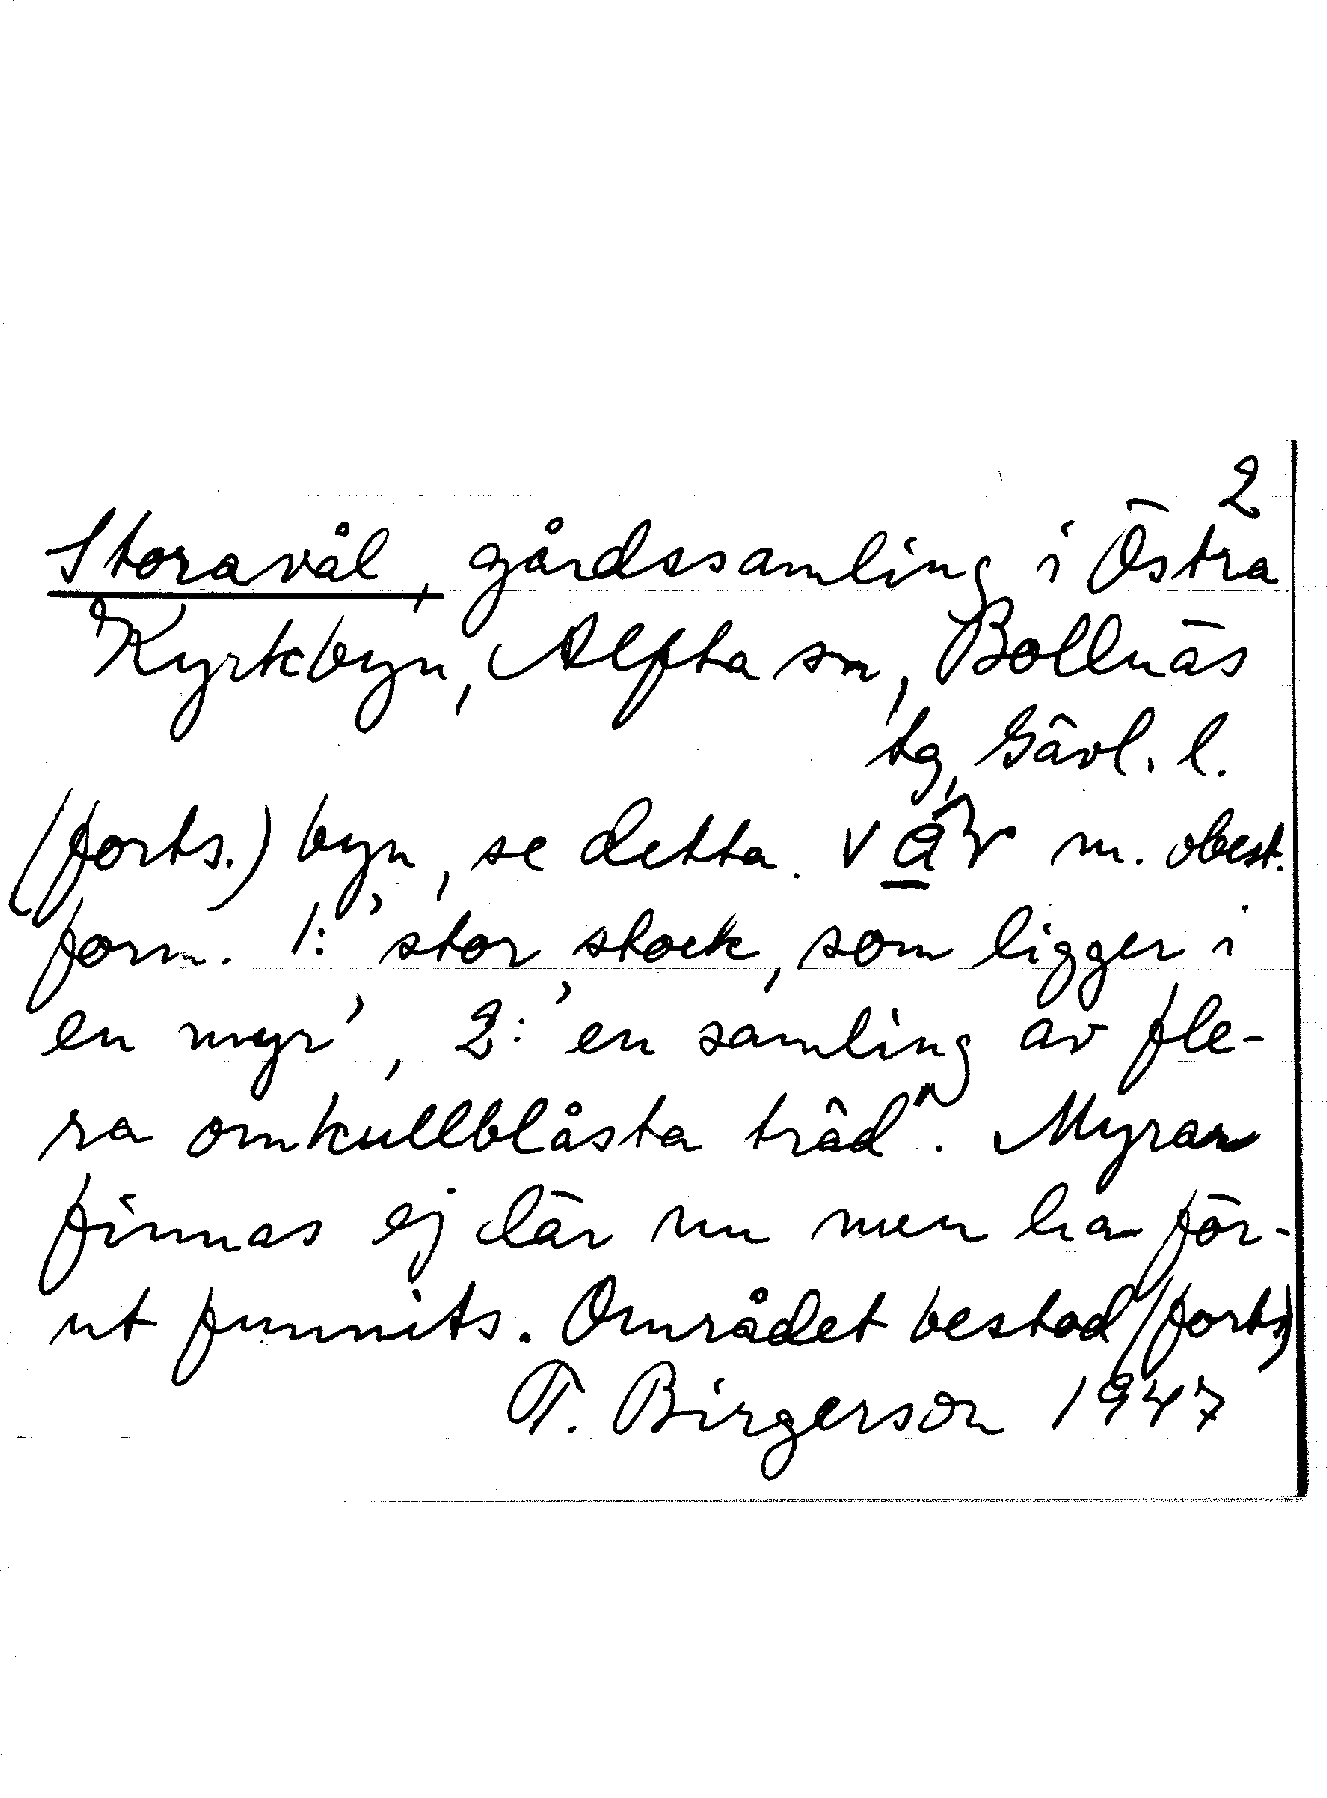 2
Storavål, gårdssamling i Östra
Kyrkbyn, Alfta sn, Bollnäs
tg, Gävl. l.
(forts.) byn, se detta. m. obest.
form. 1: 'stor stock, som ligger i
en myr', 2: 'en samling av fle-
ra omkullblåsta träd". Myran
finnas ej där nu men ha för-
ut funnits. Området bestod (forts)
T. Birgerson 1947